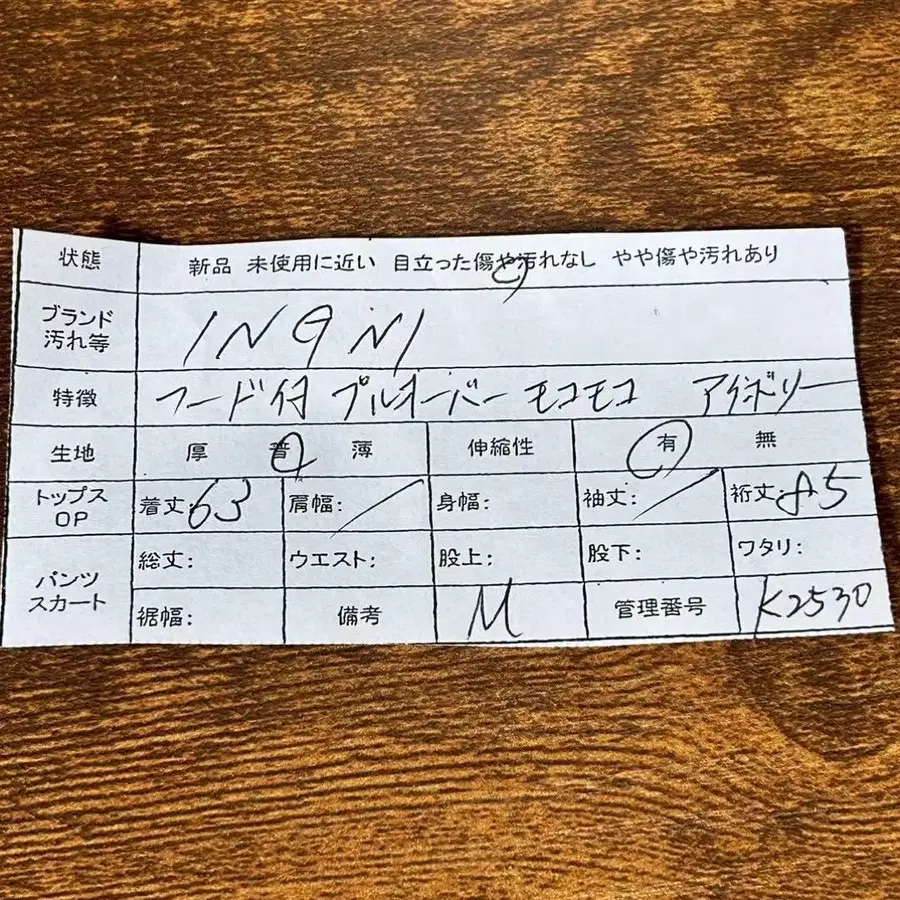 状態 新品 未使用に近い 目立った傷や汚れなし やや傷や汚れあり
ブランド
汚れ等
INGNI
特徴 フード付 プルオーバー モコモコ アイボリー
生地 厚 普 薄 伸縮性 有 無
トップス
OP
着丈:63 肩幅: 身幅: 袖丈: 裄丈:85
パンツ
スカート
総丈: ウエスト: 股上: 股下: ワタリ:
裾幅: 備考 M 管理番号 K2530